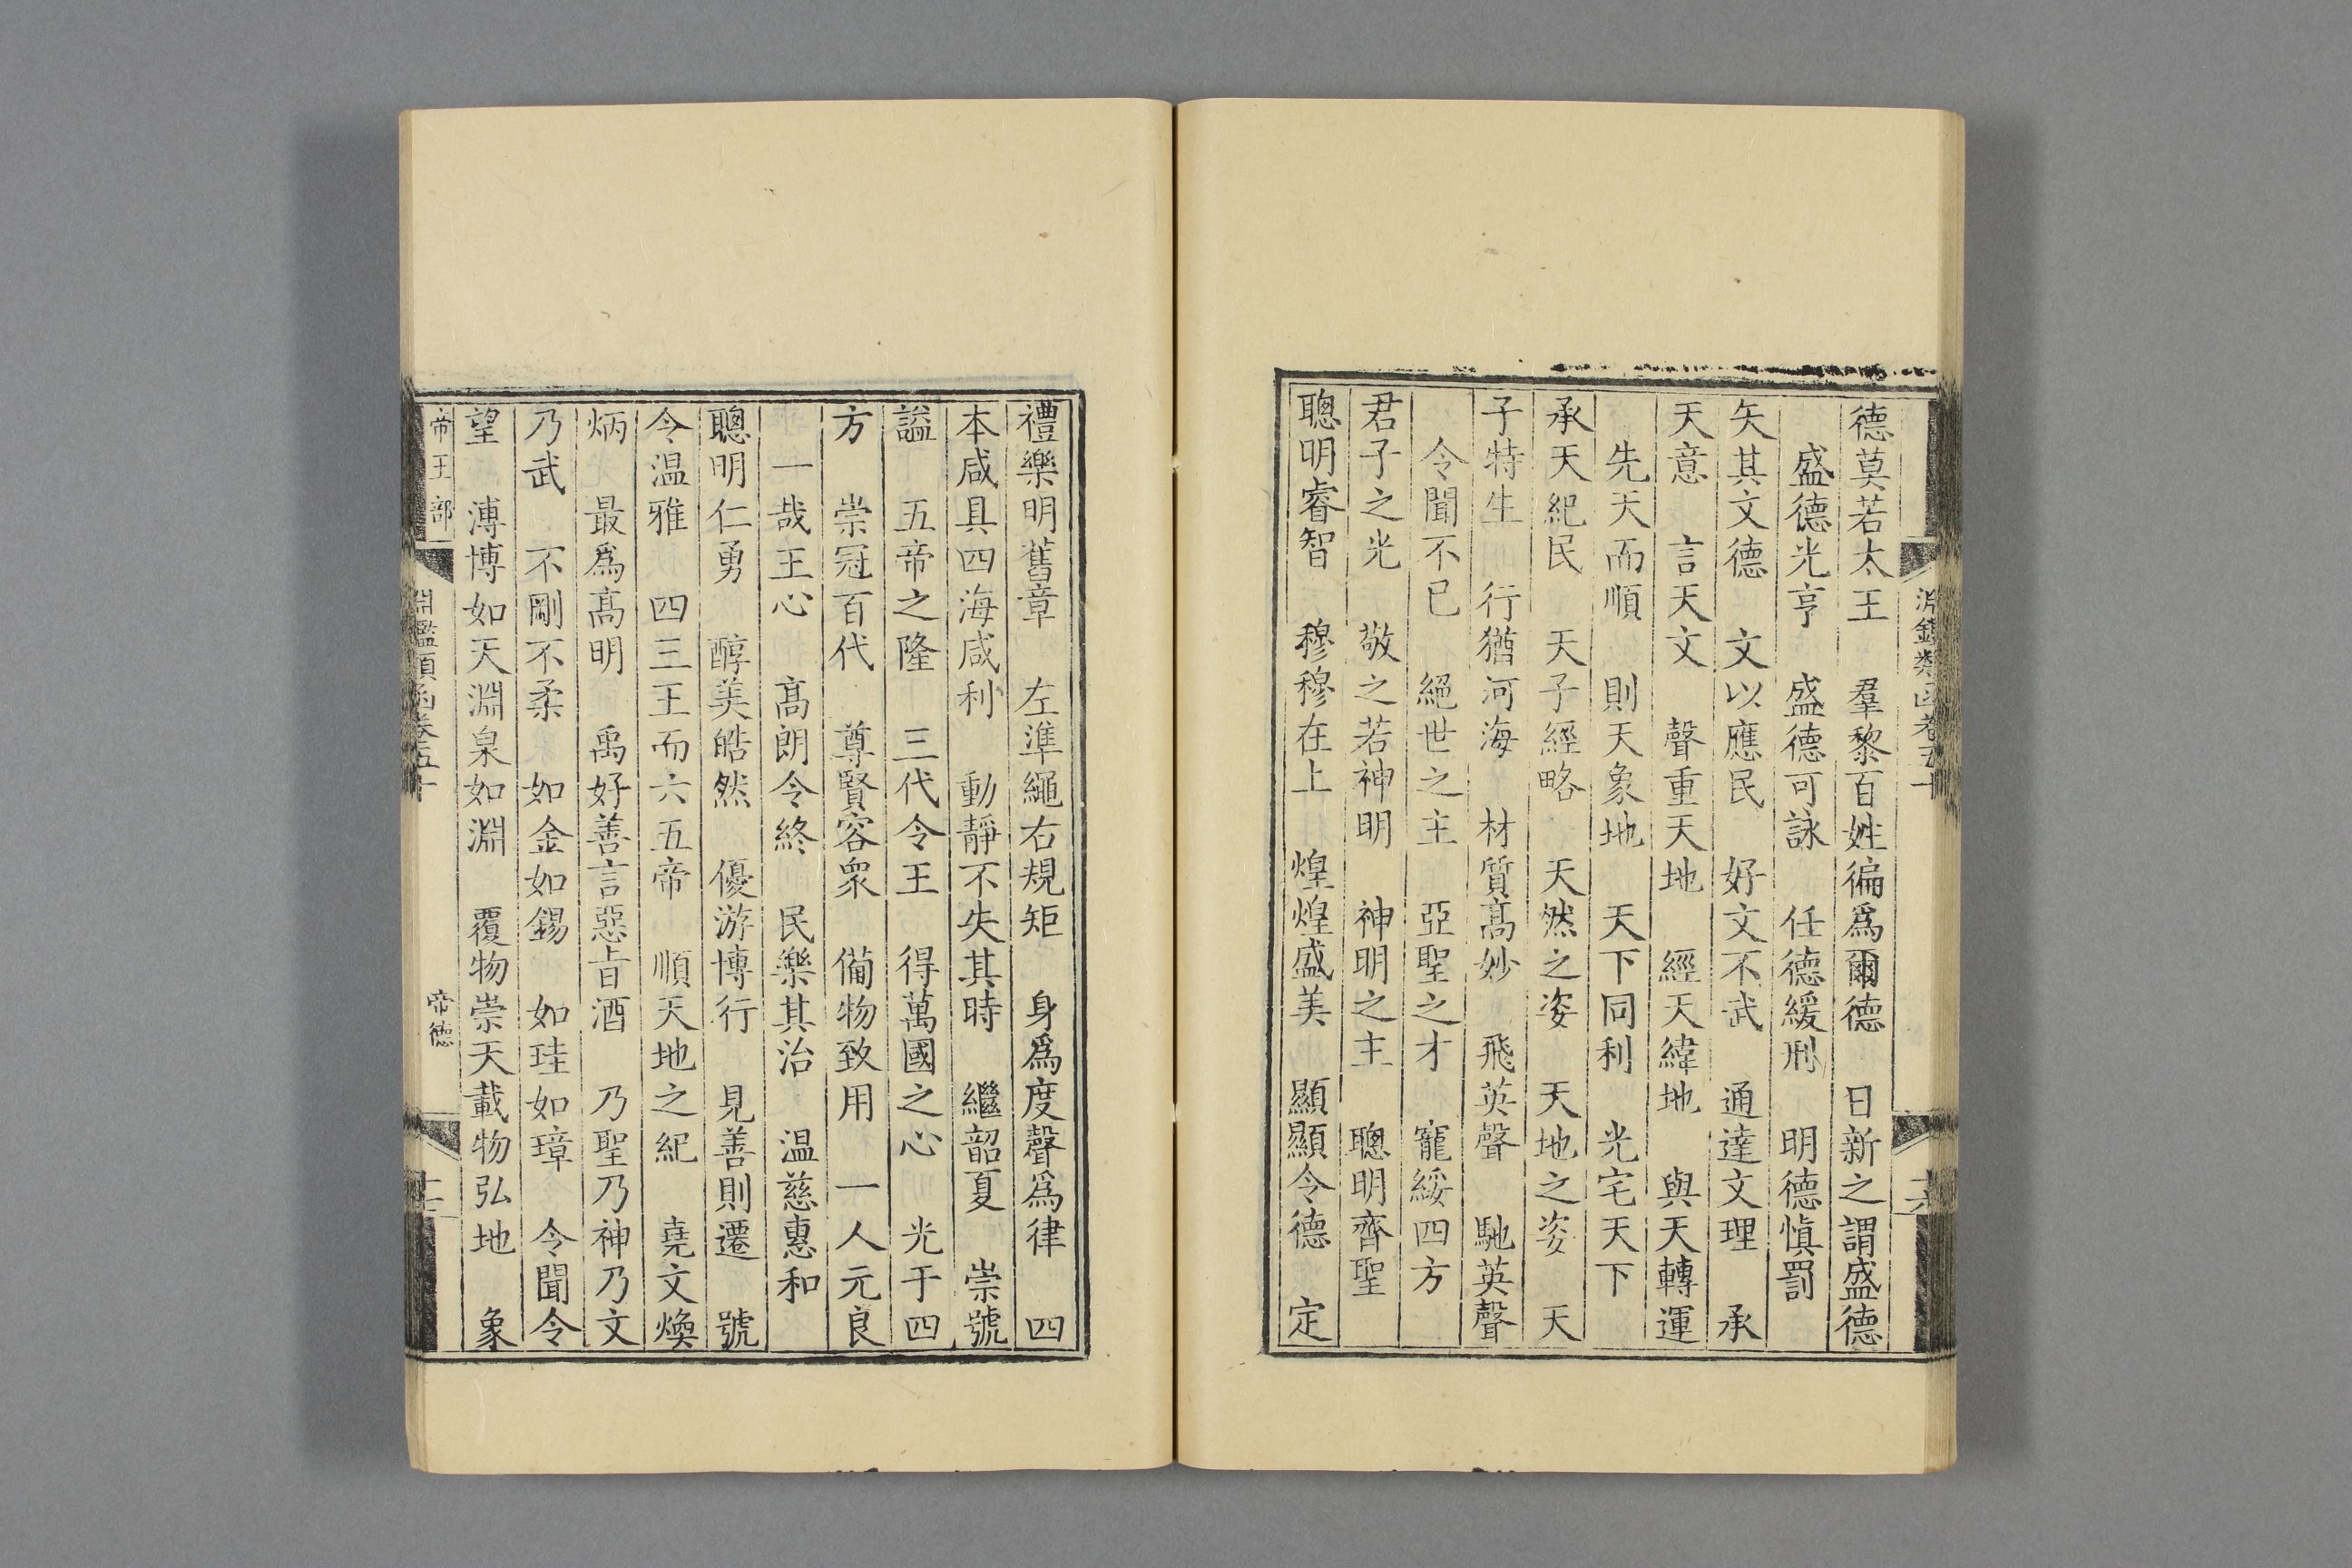 德莫若太王　羣黎百姓徧爲爾德　日新之謂盛德
盛德光亨　盛德可詠　任德緩刑　明德愼罰
矢其文德　文以應民　好文不武　通達文理　承
天意　言天文　聲重天地　經天緯地　與天轉運
先天而順　則天象地　天下同利　光宅天下
承天紀民　天子經略　天然之姿　天地之姿　天
子特生　行猶河海　材質髙妙　飛英聲　馳英聲
令聞不已　絕世之主　亞聖之才　寵綏四方
君子之光　敬之若神明　神明之主　聰明齊聖
聰明睿智　穆穆在上　煌煌盛美　顯顯令德　定
禮樂明舊章　左準繩右規矩　身爲度聲爲律　四
本咸具四海咸利　動靜不失其時　繼韶夏　崇號
謚　五帝之隆　三代令王　得萬國之心　光于四
方　崇冠百代　尊賢容衆　備物致用　一人元良
一哉王心　髙朗令終　民樂其治　温慈惠和
聰明仁勇　醇美皓然　優游博行　見善則遷　號
令温雅　四三王而六五帝　順天地之紀　堯文煥
炳　最爲髙明　禹好善言惡旨酒　乃聖乃神乃文
乃武　不剛不柔　如金如錫　如珪如璋　令聞令
望　溥博如天淵泉如淵　覆物崇天載物弘地　象
帝王部
淵鑑類函卷五十
帝德